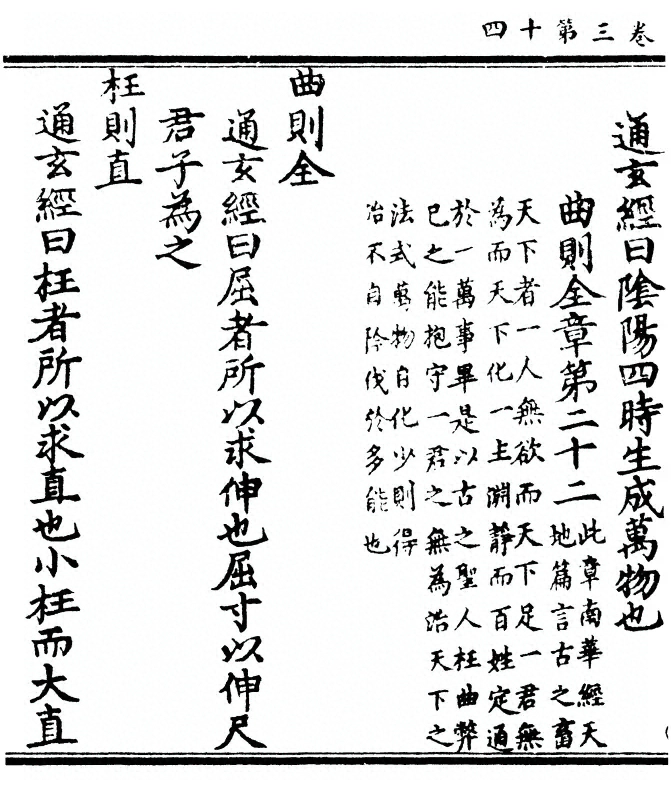 卷三第十四
通玄經曰陰陽四時生成萬物也
曲則全章第二十二
此章南華經天
地篇言古之畜
天下者一人無欲而天下足一君無
為而天下化一主淵靜而百姓定通
於一萬事畢是以古之聖人枉曲弊
已之能抱守一君之無為治天下之
法式萬物自化少則得
不自伐於多能也
曲則全
通玄經曰屈者所以求伸也屈寸以伸尺
君子為之
枉則直
通玄經曰枉者所以求直也小枉而大直